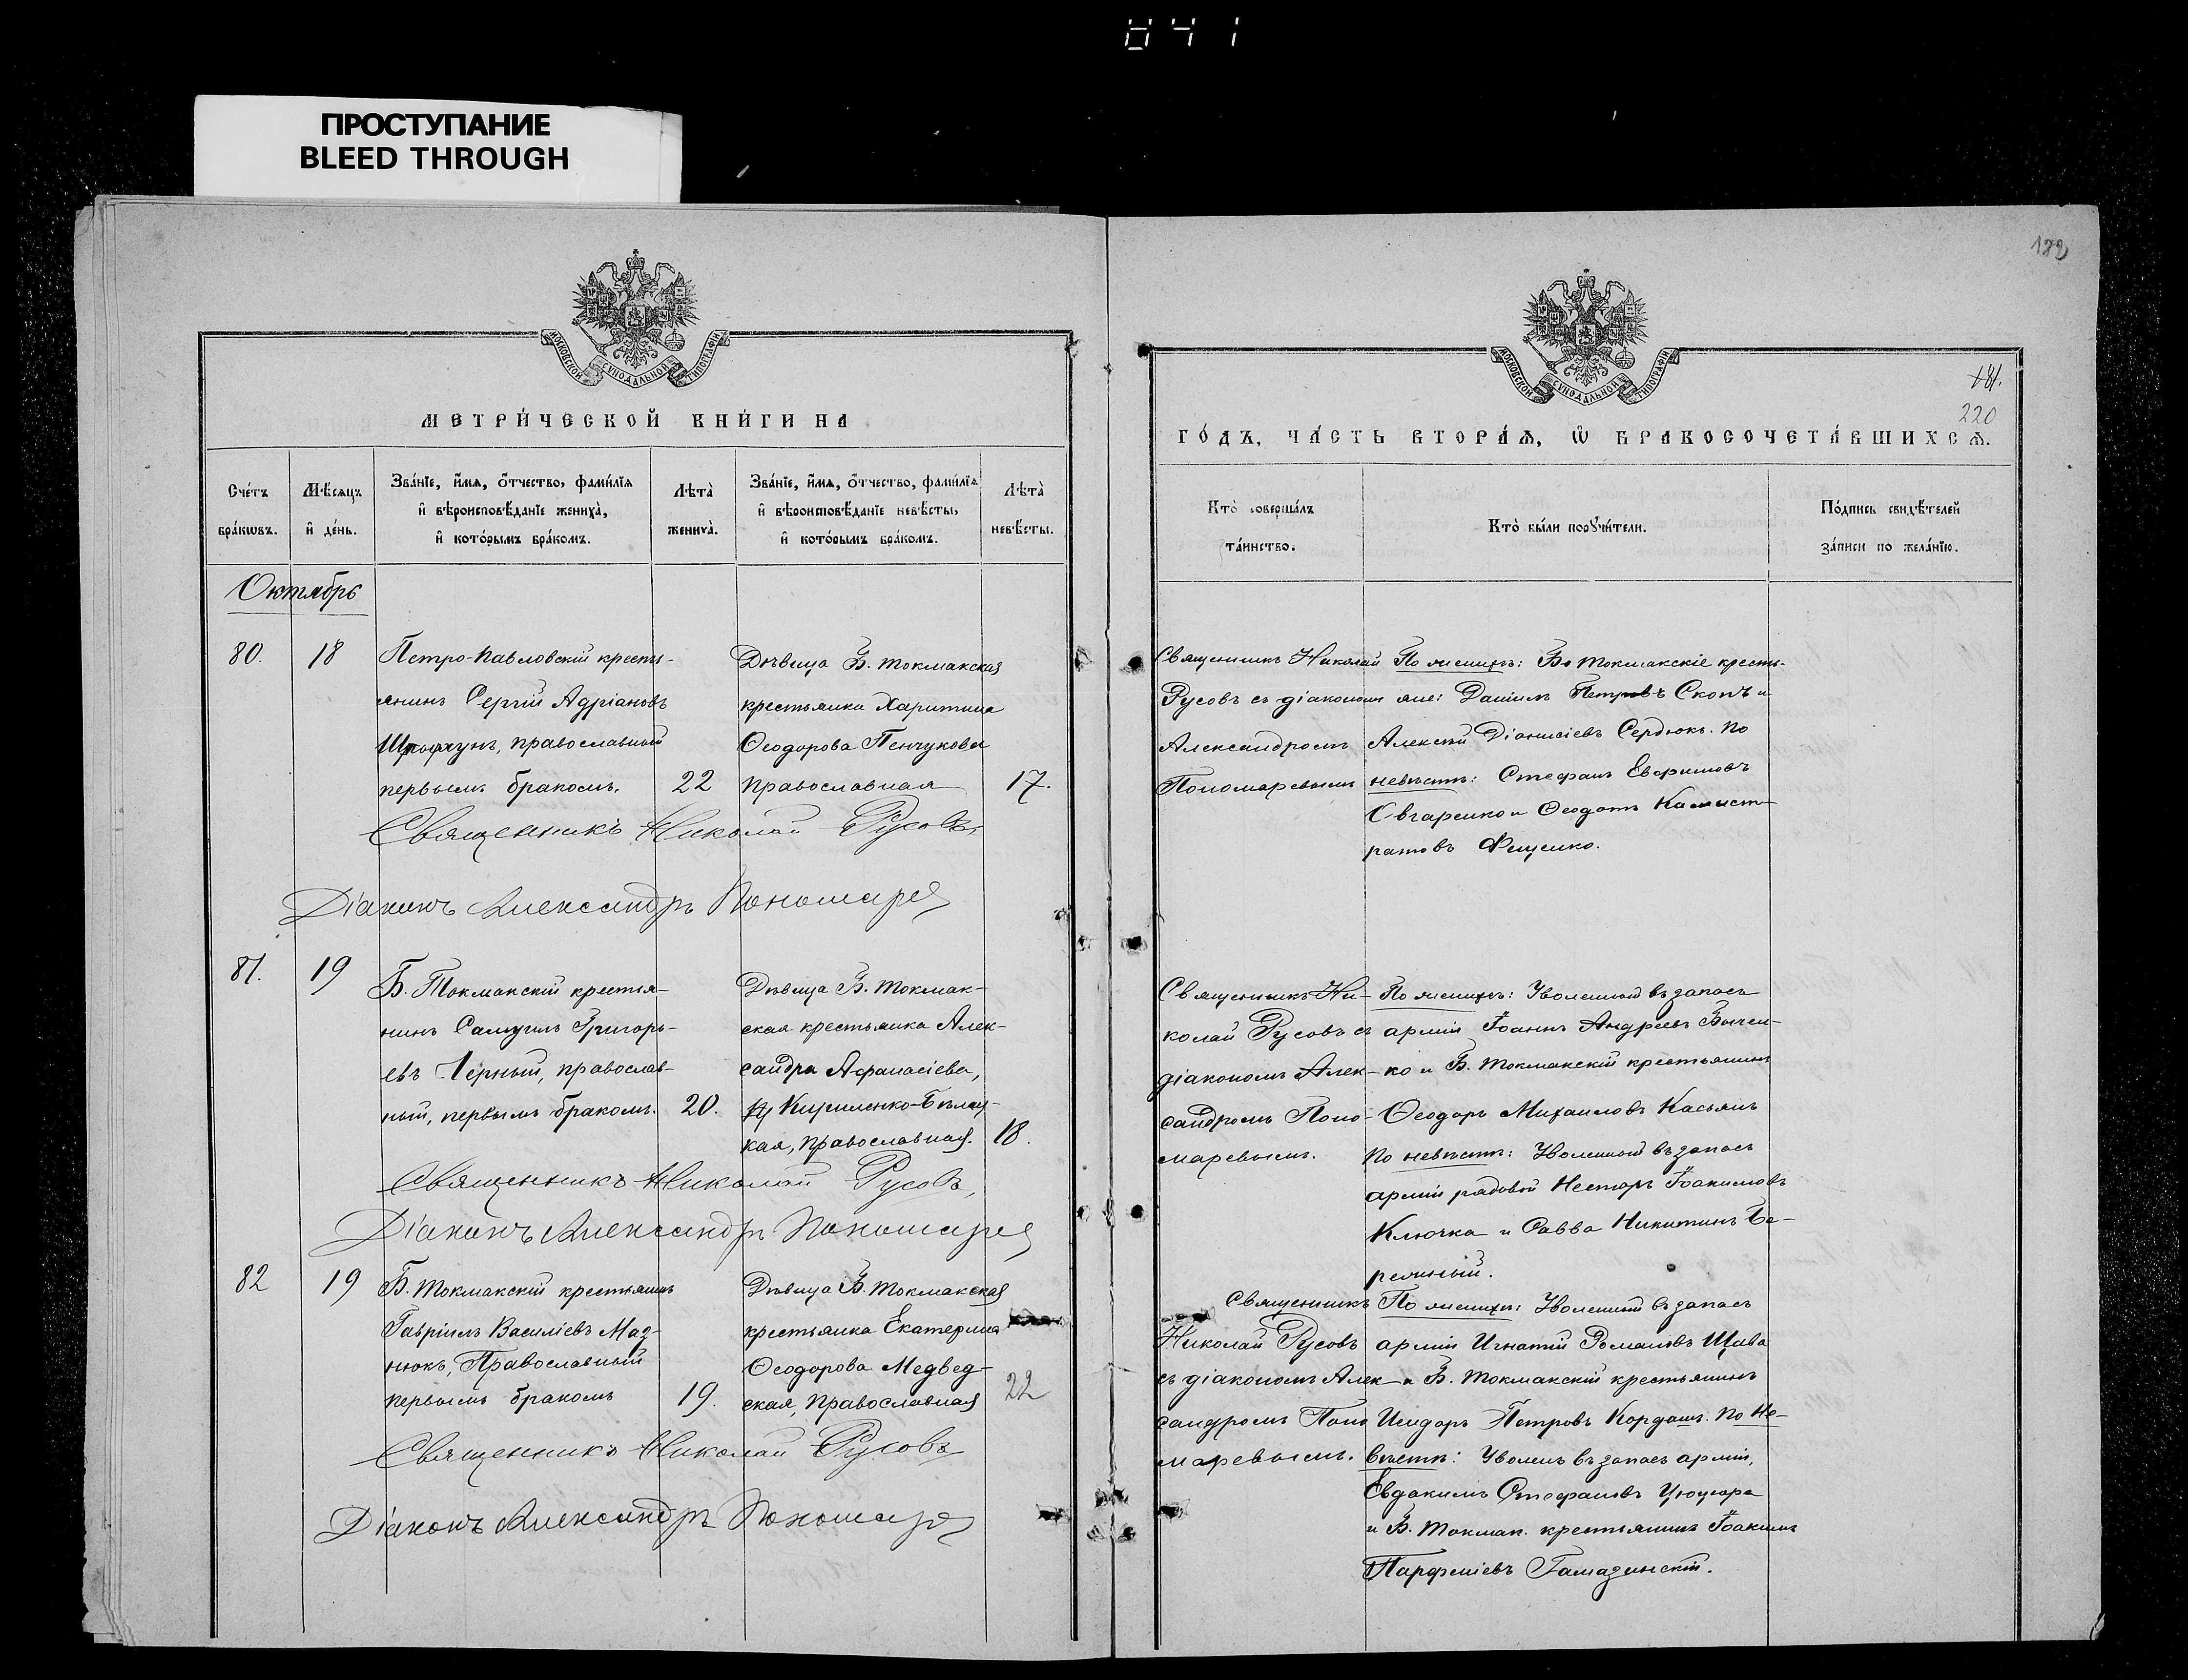 841
ПРОСТУПАНИЕ
BLEED THROUGH
МОСКОВСКОЙ СУНОДАЛЬНОЙ ТИПОГРАФІИ
МЕТРИ́ЧЕСКОЙ КНИ́ГИ НА
Сче́тъ бра́кωвъ.
Мѣ́сяцъ и҆ де́нь.
Зва́нїе, и҆́мѧ, ѻ҆́тчество, фами́лїѧ
и҆ вѣроисповѣ́данїе жениха̀,
и҆ кото́рымъ бра́комъ.
Лѣта̀ жениха̀.
Зва́нїе, и҆́мѧ, ѻ҆́тчество, фами́лїѧ
и҆ вѣроисповѣ́данїе невѣ́сты,
и҆ кото́рымъ бра́комъ.
Лѣта̀ невѣ́сты.
Октябрь
80.
18
Петро-Павловскій кресть-
янинъ Сергій Адріановъ
православный
первымъ бракомъ.
22
Дѣвица Б. Токмакская
крестьянка Харитина
Ѳеодорова Пенчукова
православная
17.
Священникъ Николай Русовъ,
Діаконъ Александръ Пономарев
81.
19
Б. Токмакскій крестья-
нинъ Самуилъ Григорь-
евъ Черный, православ-
ный, первымъ бракомъ.
20.
Дѣвица Б. Токмак-
ская крестьянка Алек-
сандра Аѳанасіева,
Кириленко-Бѣлиц-
кая, православная.
18.
Священникъ Николай Русовъ,
Діаконъ Александръ Пономарев
82
19
Б. Токмакскій крестьянинъ
Гавріилъ Василіевъ Маз-
нюкъ, Православный
первымъ бракомъ
19.
Дѣвица Б. Токмакская
крестьянка Екатерина
Ѳеодорова Медвед-
ская, Православная
22
Священникъ Николай Русовъ
Діаконъ Александръ Пономарев
182
МОСКОВСКОЙ СУНОДАЛЬНОЙ ТИПОГРАФІИ
181.
220
ГО́ДЪ, ЧА́СТЬ ВТОРА́Ѧ, Ѽ БРАКОСОЧЕТА́ВШИХСѦ.
Кто̀ соверша́лъ та́инство.
Кто̀ бы́ли порꙋчи́тели.
По́дпись свидѣ́телей за́писи по жела́нїю.
Священникъ Николай
Русовъ съ діакономъ
Александромъ
Пономаревымъ
По женихѣ: Б. Токмакскіе кресть-
яне: Даніилъ Петровъ Скопъ и
Алексій Діонисіевъ Сердюкъ. По
невѣстѣ: Стефанъ Евфимовъ
Овчаренко и Ѳеодотъ Калист-
ратовъ Фещенко.
Священникъ Ни-
колай Русовъ съ
діакономъ Алек-
сандромъ Поно-
маревымъ.
По женихѣ: Уволенный въ запасъ
арміи Іоаннъ Андреевъ Бычен-
ко и Б. Токмакскій крестьянинъ
Ѳеодоръ Михаиловъ Касьянъ
По невѣстѣ: Уволенный въ запасъ
арміи рядовой Несторъ Іоакимовъ
Ключка и Савва Никитинъ Бе-
режный.
Священникъ
Николай Русовъ
съ діакономъ Алек-
сандромъ Поно
маревымъ.
По женихѣ: Уволенный въ запасъ
арміи Игнатій Романовъ Щава
и Б. Токмакскій крестьянинъ
Исидоръ Петровъ Кордашъ. По не-
вѣстѣ: Уволенъ въ запасъ арміи,
Евдокимъ Стефановъ Цюцюра
и Б. Токмак. крестьянинъ Іоакимъ
Парѳеніевъ Гамазинскій.